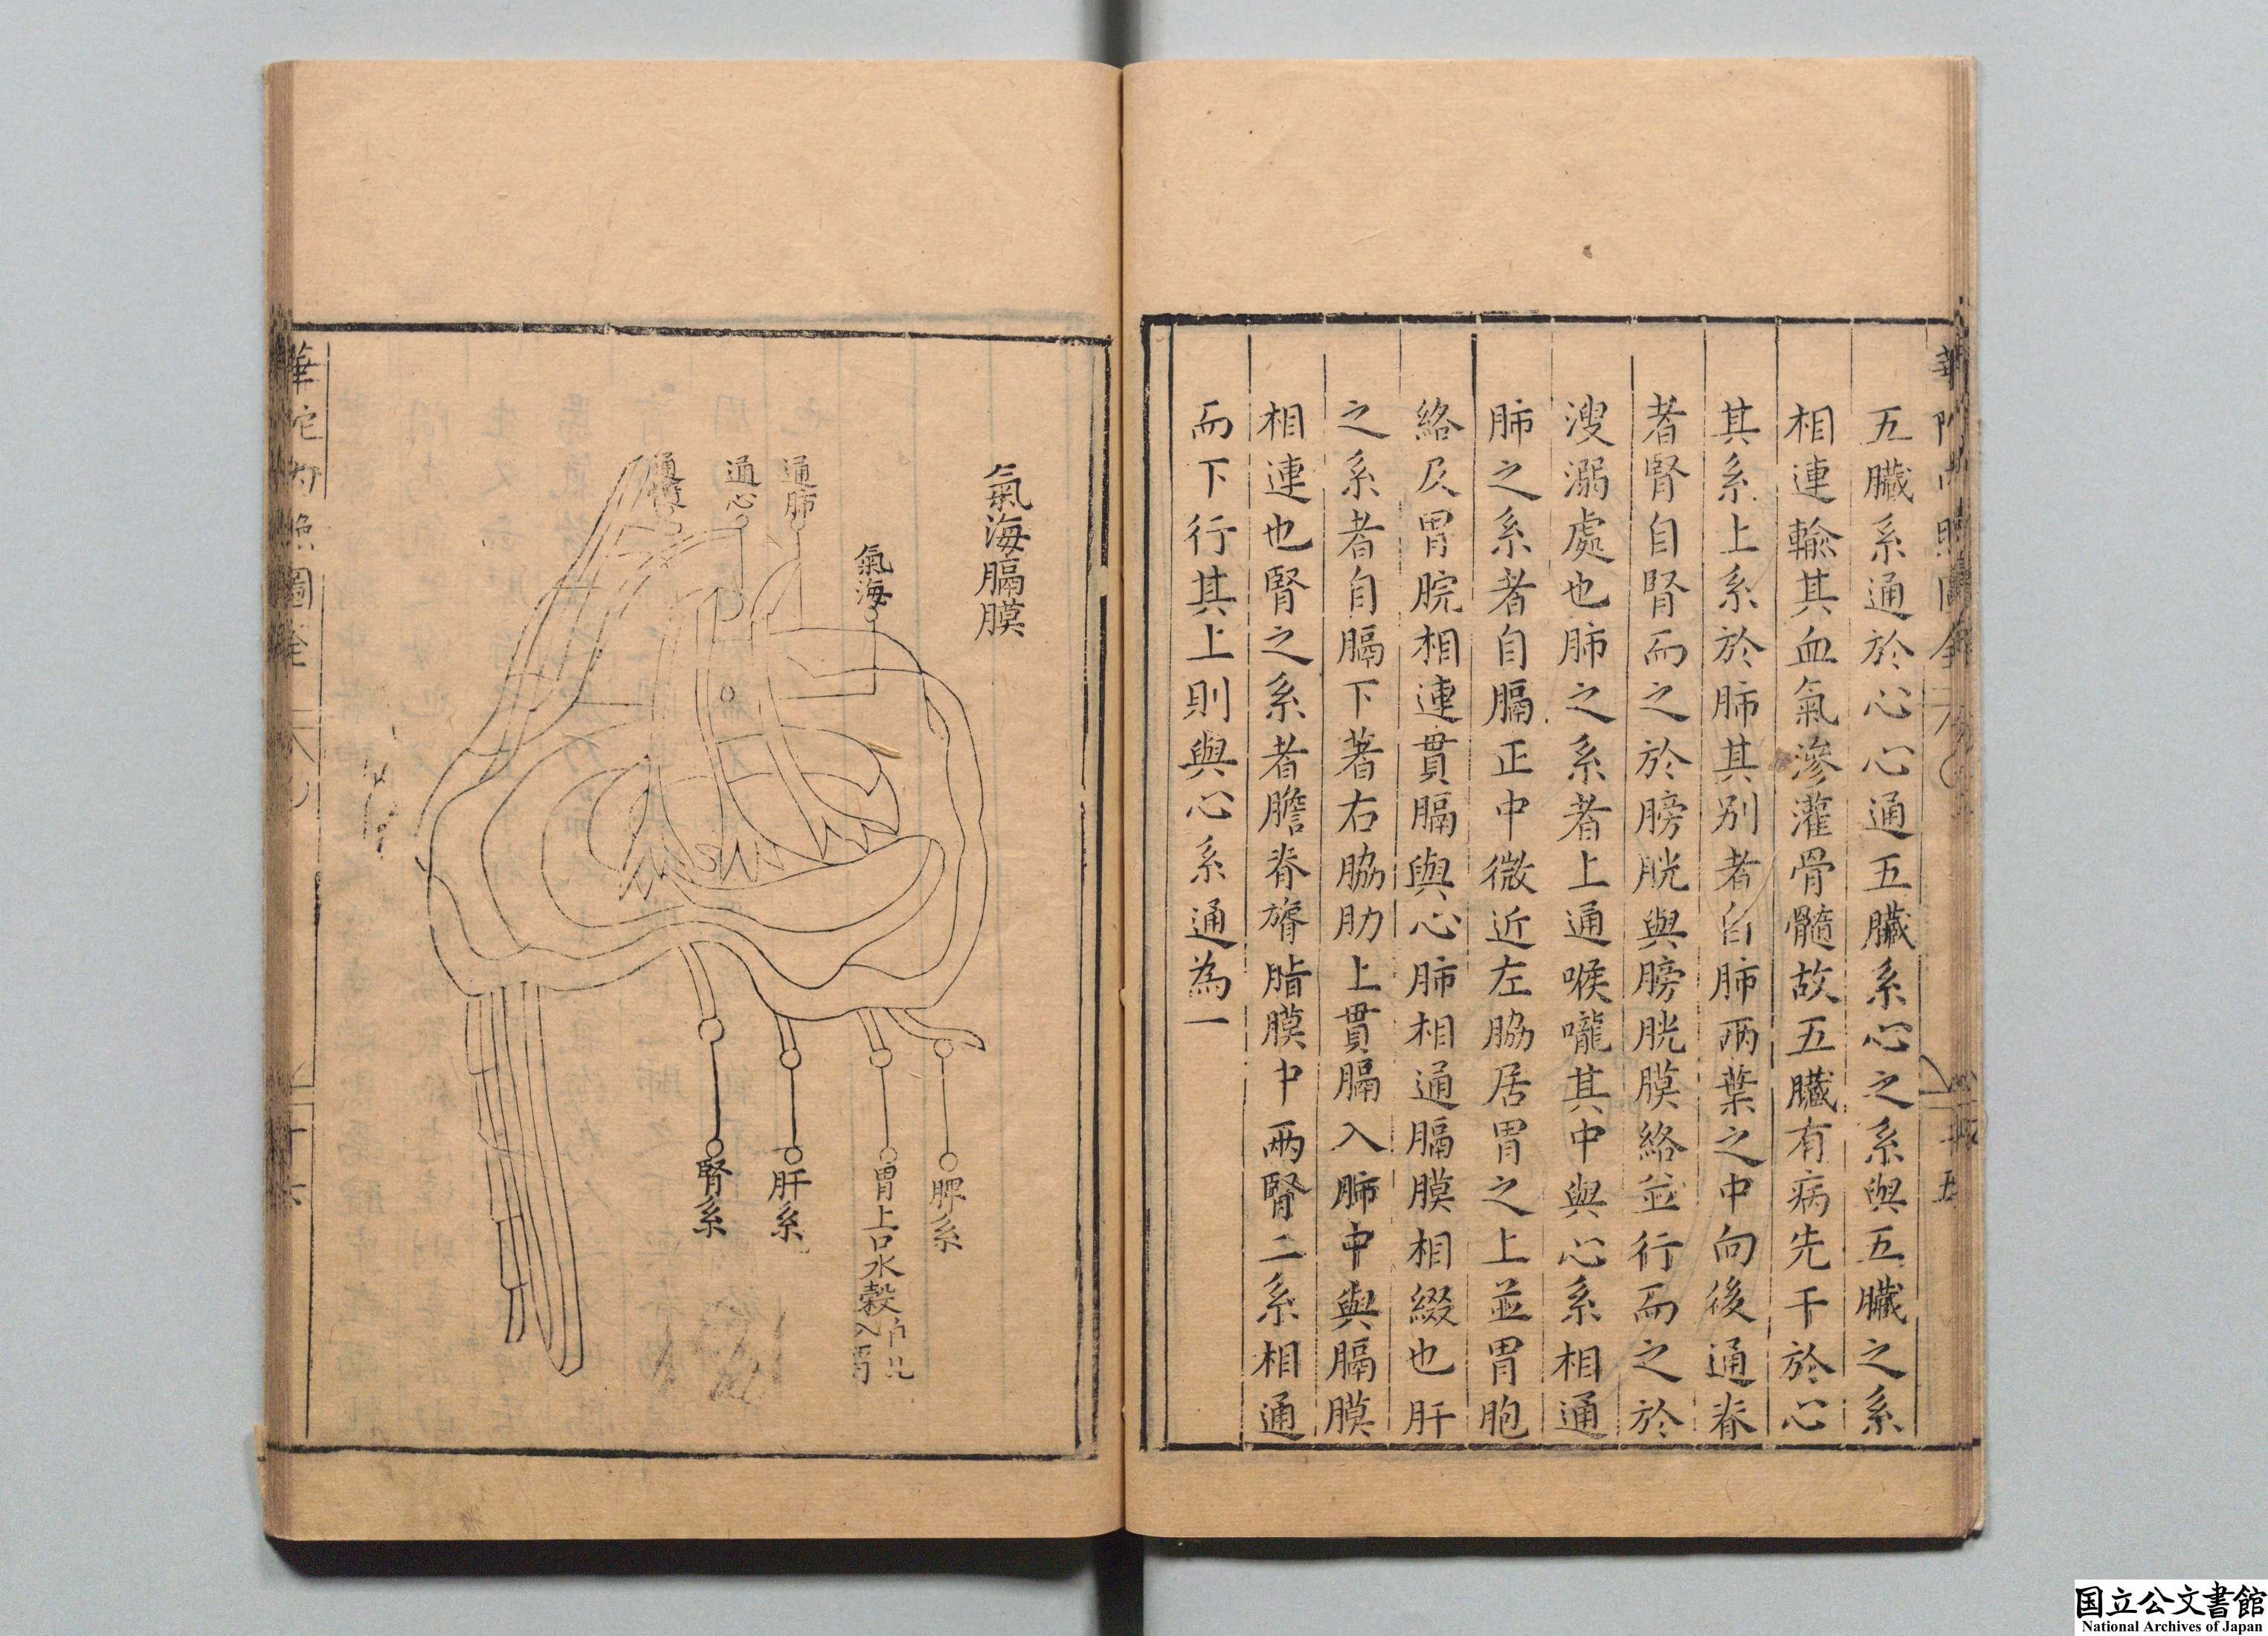 五臟系通於心心通五臟系心之系與五臟之系
相連輸其血氣滲灌骨髓故五臟有病先干於心
其系上系於肺其別者自肺兩葉之中向後通脊
者腎自腎而之於膀胱與膀胱膜絡並行而之於
溲溺處也肺之系者上通喉嚨其中與心系相通
肺之系者自膈正中微近左脇居胃之上並胃胞
絡及胃脘相連貫膈與心肺相通膈膜相綴也肝
之系者自膈下著右脇肋上貫膈入肺中與膈膜
相連也腎之系者膽脊膂脂膜中兩腎二系相通
而下行其上則與心系通為一
氣海膈膜
氣海
通肺
通心
脾系
胃上口水穀
入胃
肝系
腎系
華佗內照圖全
国立公文書館
National Archives of Japan